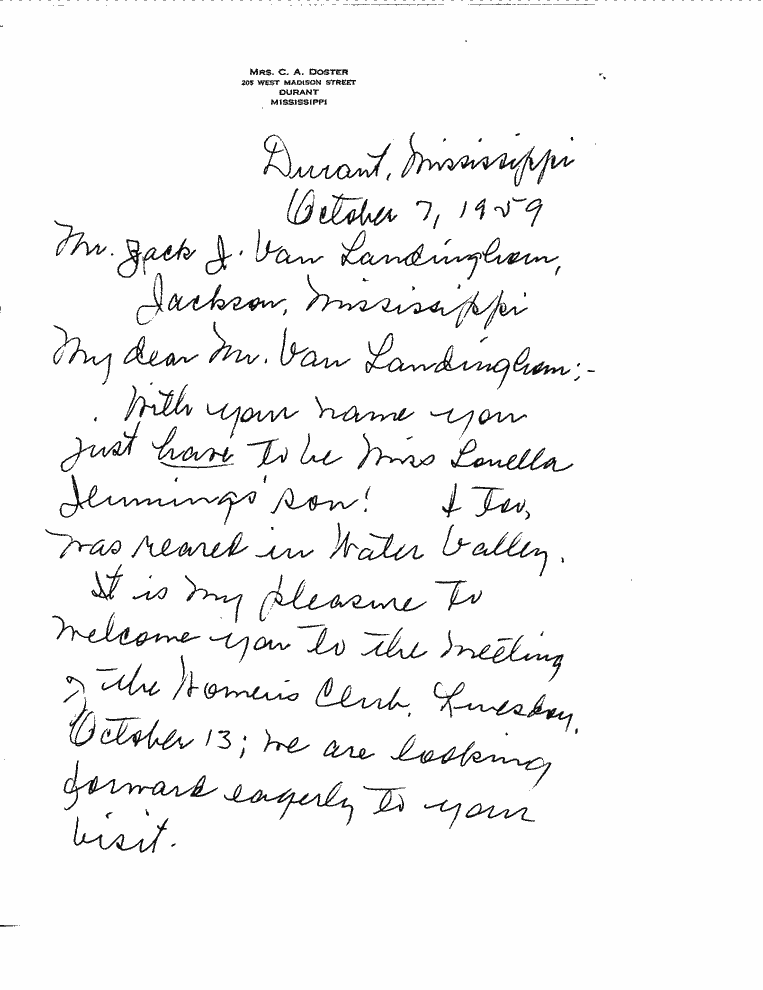 MRS. C. A. DOSTER
205 WEST MADISON STREET
DURANT
MISSISSIPPI
Durant, Mississippi
October 7, 1959
Mr. Jack J. Van Landingham,
Jackson, Mississippi
My dear Mr. Van Landingham:-
With your name you
just have to be Miss Louella
Jennings' son! I too,
was reared in Water Valley.
It is my pleasure to
welcome you to the meeting
of the Women's Club, Tuesday,
October 13; we are looking
forward eagerly to your
visit.